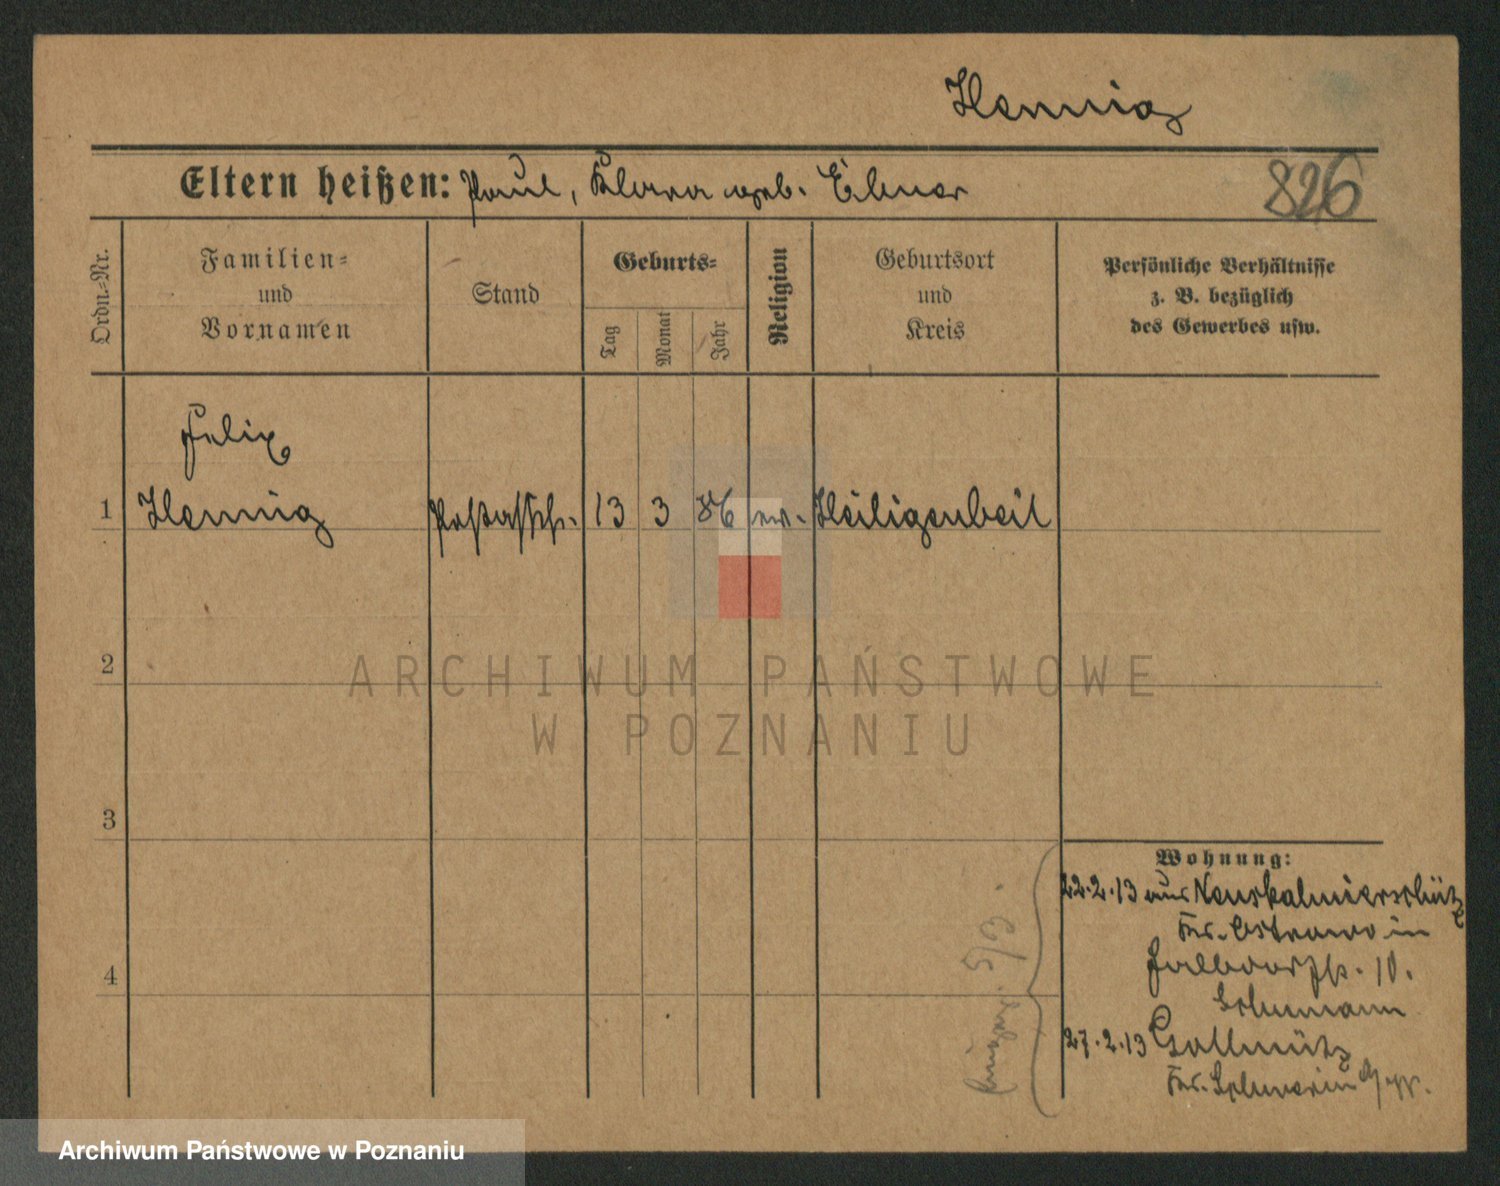 Hennig
Eltern heißen: Paul, Klara geb. Ebner
826
Ordn.-Nr.
Familien-
und
Vornamen
Stand
Geburts-
Tag
Monat
Jahr
Religion
Geburtsort
und
Kreis
Persönliche Verhältnisse
z. B. bezüglich
des Gewerbes usw.
Felix
1 Hennig Postassist. 13 3 86 ev. Heiligenbeil
2
3
4
Wohnung:
22.2.13 aus Neuskalmierschütz
Kr. Ostrowo in
10.
Schumann
27.2.13 Gollmütz
Kr. Schwerin
ARCHIWUM PAŃSTWOWE
W POZNANIU
Archiwum Państwowe w Poznaniu